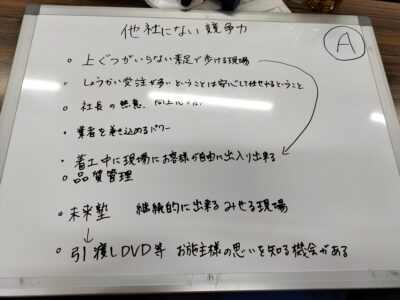 他社にない競争力
A
上ぐつがいらない素足で歩ける現場
しょうかい受注が多いということは安心して任せれるということ
社長の熱意、向上心
業者を巻き込めるパワー
着工中に現場にお客様が自由に出入り出来る
品質管理
未来塾 継続的に出来る みせる現場
引渡しDVD等 お施主様の思いを知る機会がある